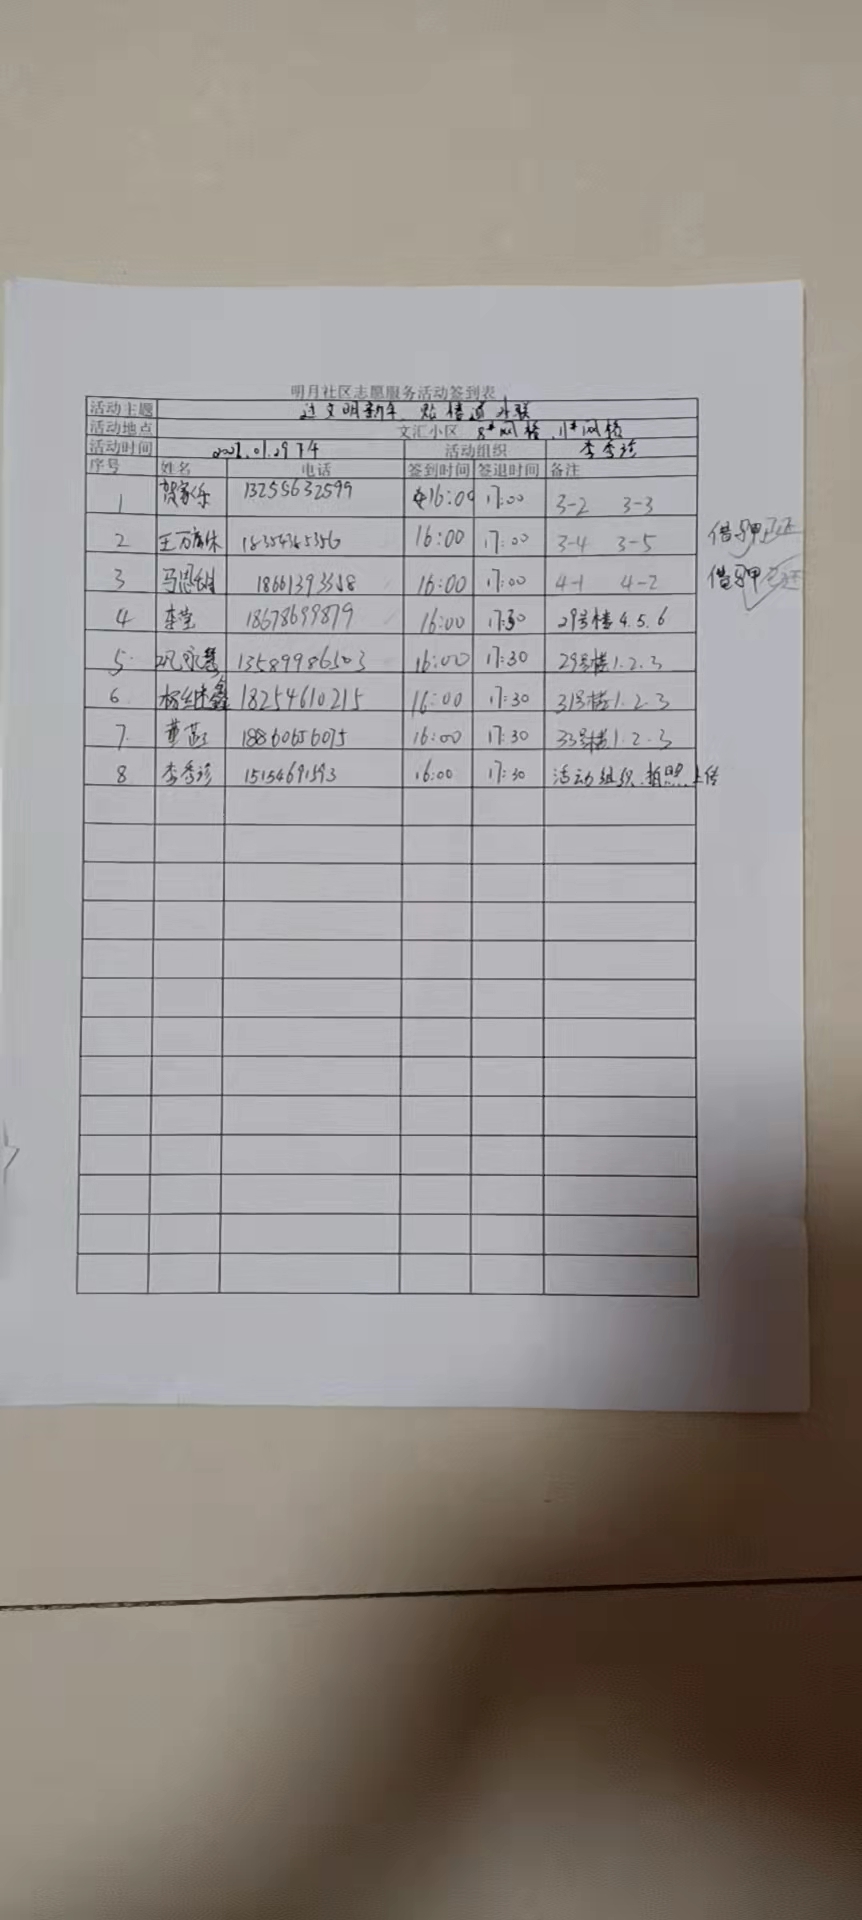 明月社区志愿服务活动签到表
活动主题 过文明新年、贴楼道对联
活动地点 文汇小区 8#网格、11#网格
活动时间 01.29下午 活动组织 李秀珍
序号 姓名 电话 签到时间 签退时间 备注
1 贺家乐 13255632599 16:00 17:00 3-2 3-3
2 16:00 17:00 3-4 3-5 借马甲 已还
3 16:00 17:00 4-1 4-2 借马甲 已还
4 李莹 18678699879 16:00 17:30 29号楼4.5.6
5 巩永慧 13589986503 16:00 17:30 29号楼1.2.3
6 杨继鑫 18254610215 16:00 17:30 31号楼1.2.3
7 18860656075 16:00 17:30 33号楼1.2.3
8 李秀珍 15154691593 16:00 17:30 活动组织、拍照、上传